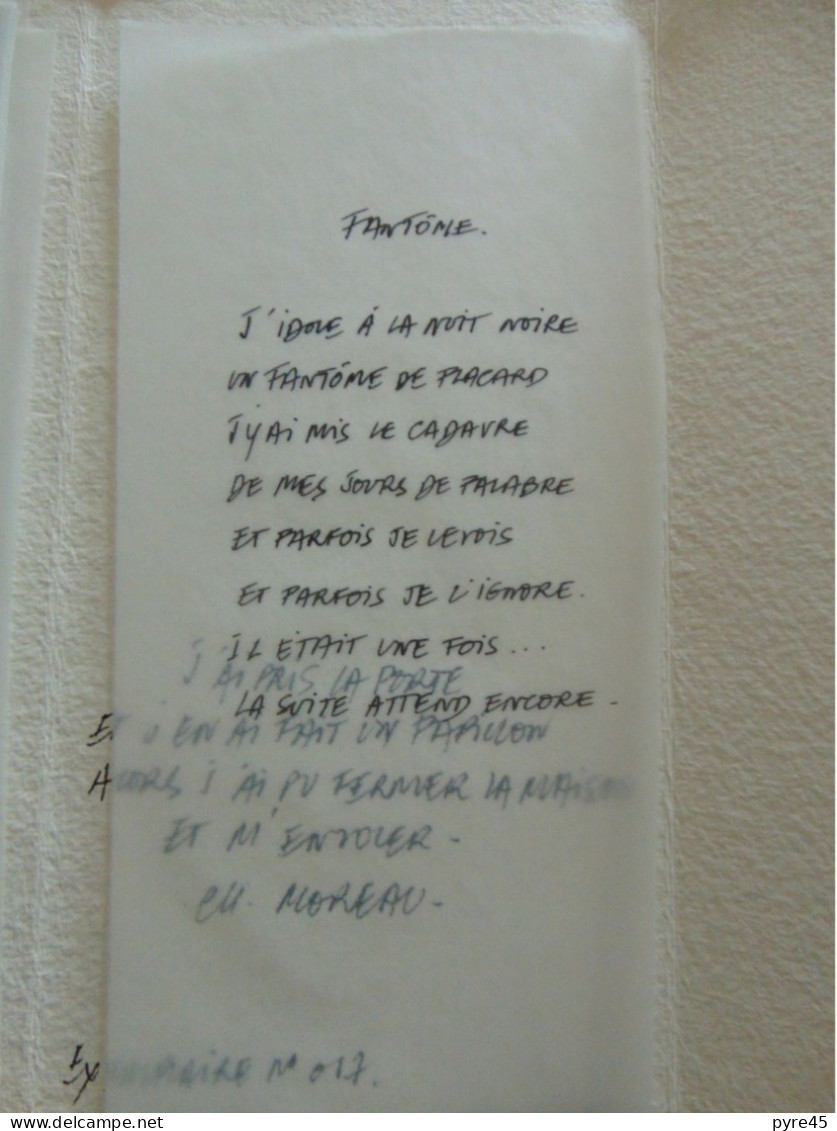 FANTÔME.
J'IDOLE À LA NUIT NOIRE
UN FANTÔME DE PLACARD
J'Y AI MIS LE CADAVRE
DE MES JOURS DE PALABRE
ET PARFOIS JE LE VOIS
ET PARFOIS JE L'IGNORE.
IL ÉTAIT UNE FOIS...
LA SUITE ATTEND ENCORE.
J'AI PRIS LA PORTE
ET J'EN AI FAIT UN PAPILLON
ALORS J'AI PU FERMER LA MAISON
ET M'ENVOLER.
CH. MOREAU.
EXEMPLAIRE N° 017.
delcampe.net
pyre45